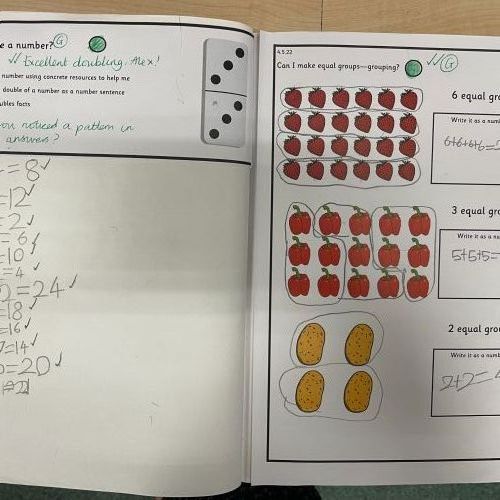 e a number? G
✓✓ Excellent doubling, Alex!
number using concrete resources to help me
double of a number as a number sentence
ubles facts
you noticed a pattern in
answers?
= 8 ✓
=12 ✓
= 2 ✓
= 6
=10 ✓
= 4 ✓
2=24 ✓
=18 ✓
=16 ✓
7=14 ✓
=20 ✓
4.5.22
Can I make equal groups—grouping? ✓✓ G
6 equal gro
Write it as a numb
6+6+6+6=2
3 equal gro
Write it as a num
5+5+5=
2 equal grou
Write it as a numb
2+2= 4